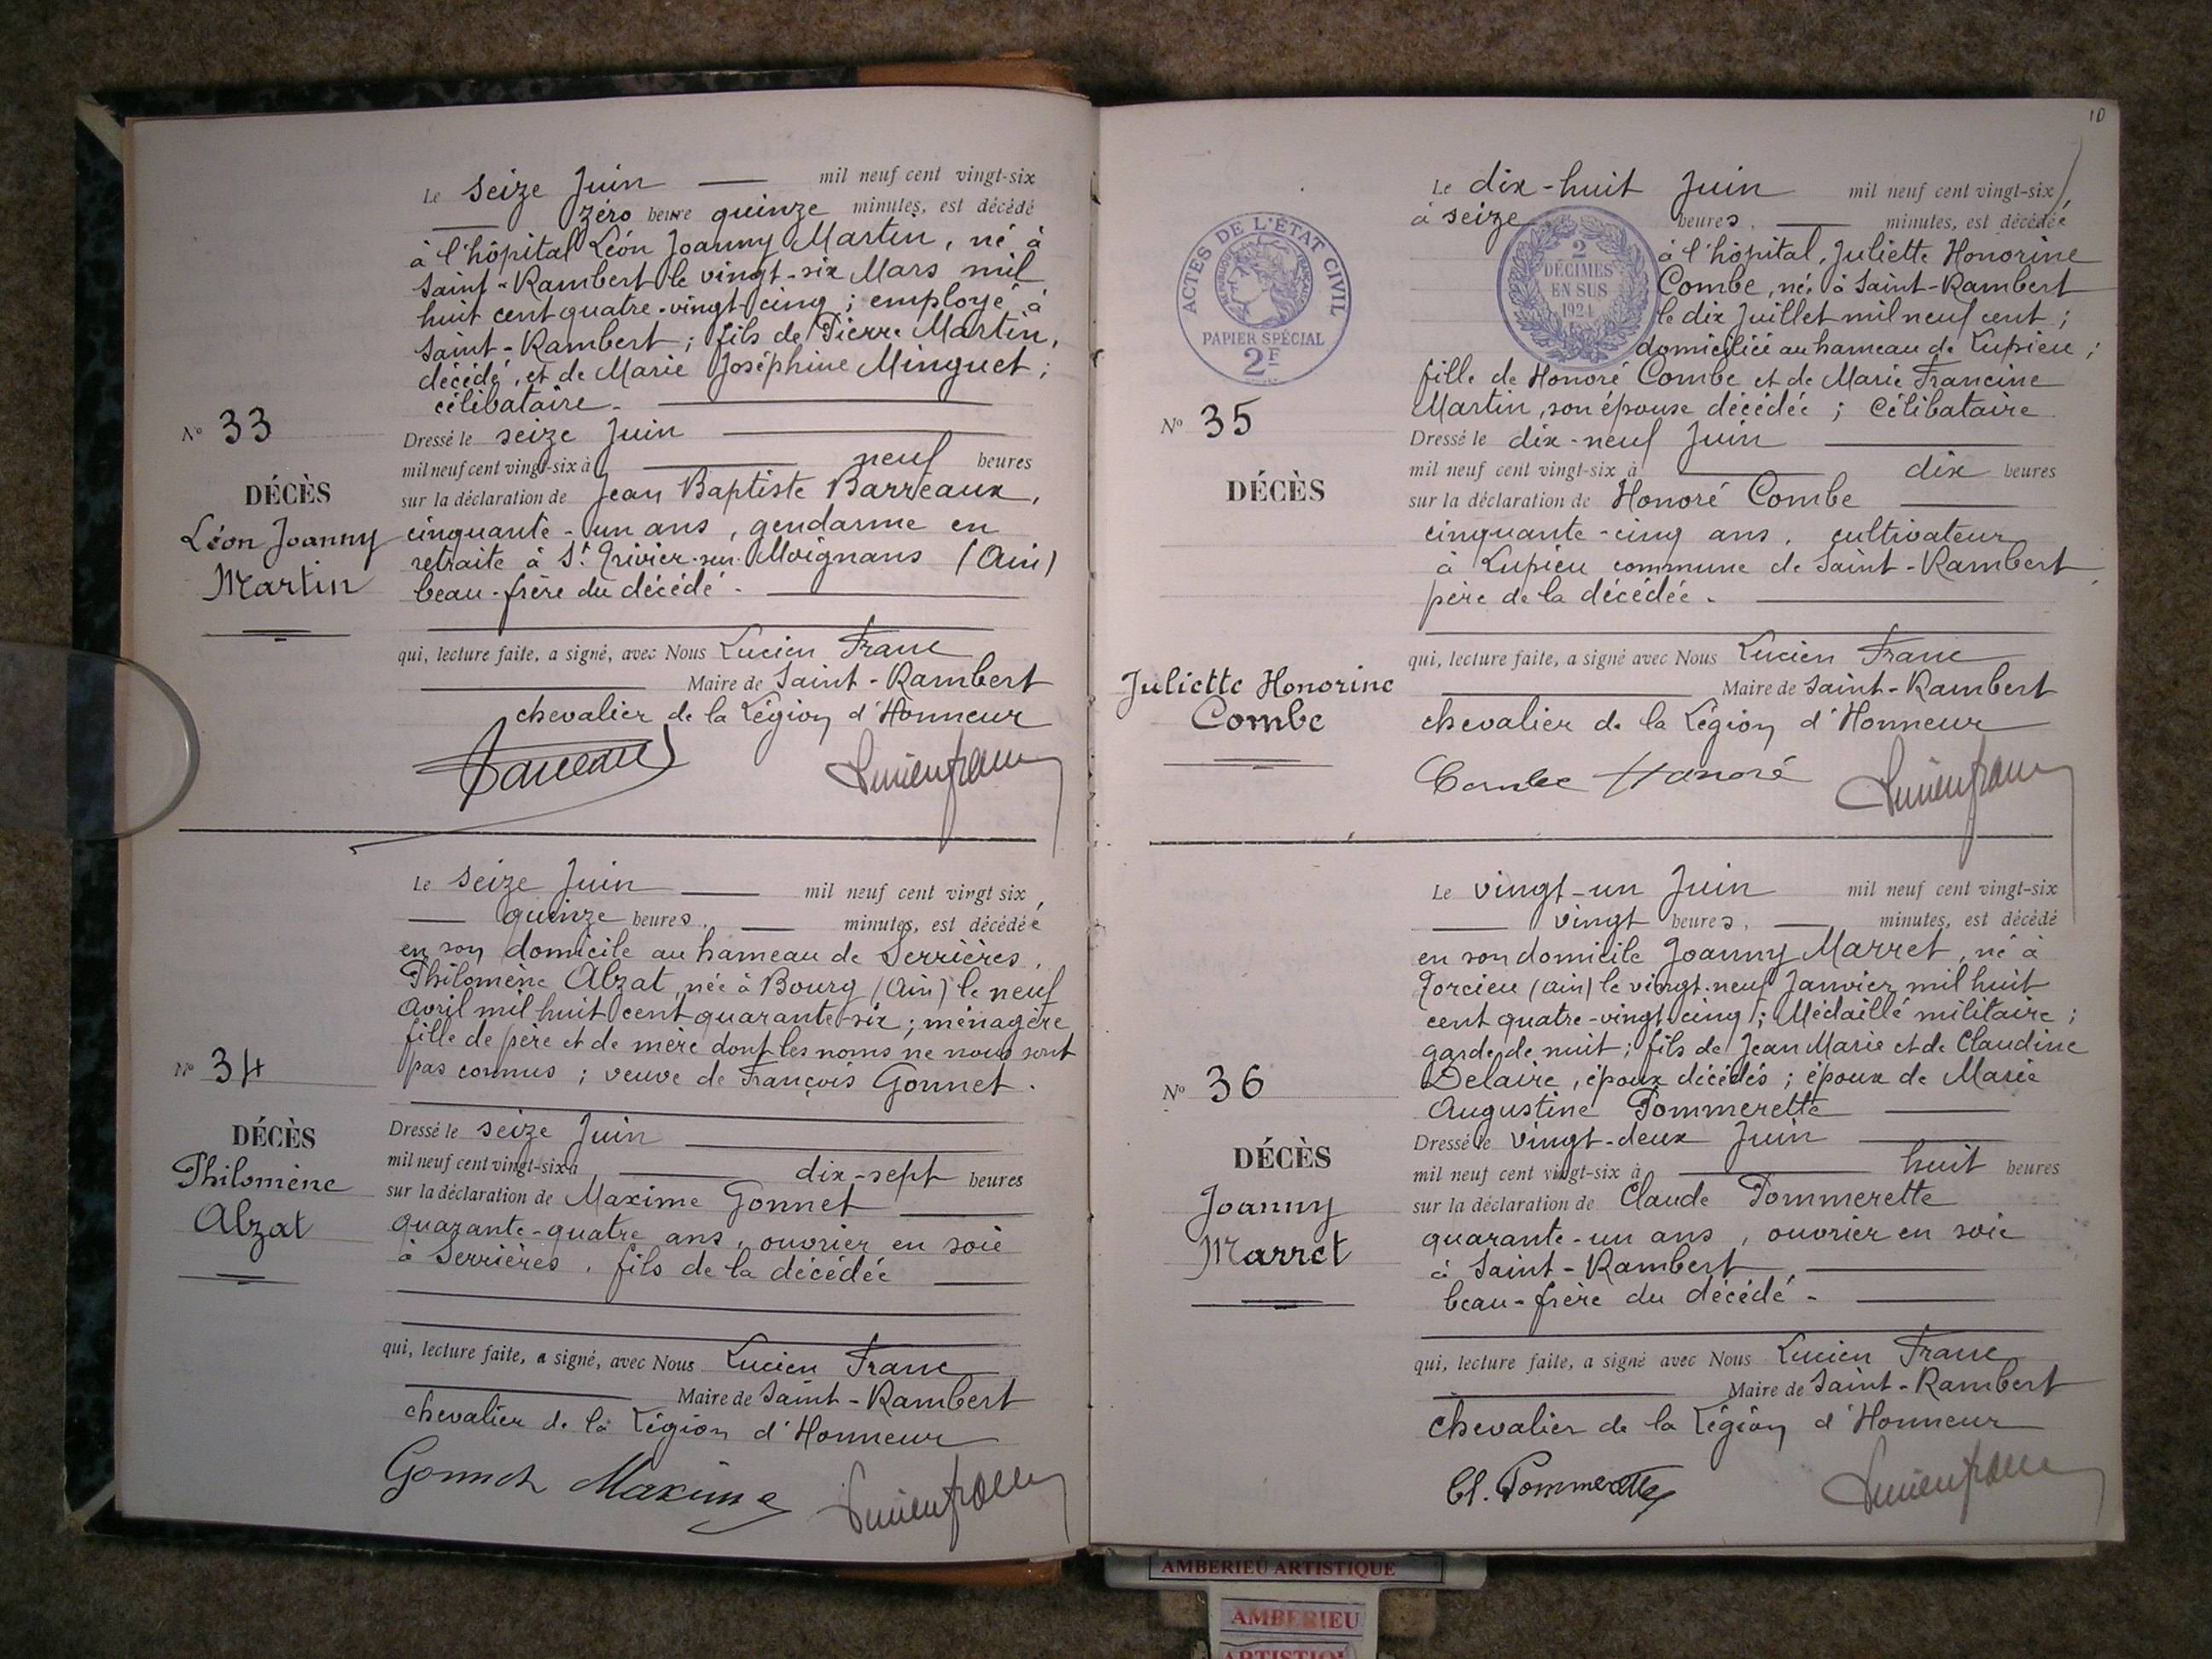 Le seize Juin mil neuf cent vingt-six
zéro heure quinze minutes, est décédé
à l'hôpital Léon Joanny Martin, né à
Saint-Rambert le vingt-six Mars mil
huit cent quatre-vingt-cinq ; employé à
Saint-Rambert ; fils de Pierre Martin,
décédé, et de Marie Joséphine Minguet ;
célibataire.
N° 33
DÉCÈS
Léon Joanny
Martin
Dressé le seize Juin
mil neuf cent vingt-six à neuf heures
sur la déclaration de Jean Baptiste Barreaux,
cinquante-un ans, gendarme en
retraite à St. Trivier-sur-Moignans (Ain)
beau-frère du décédé.
qui, lecture faite, a signé, avec Nous Lucien Franc
Maire de Saint-Rambert
chevalier de la Légion d'Honneur
Le seize Juin mil neuf cent vingt six,
quinze heures, minutes, est décédée
en son domicile au hameau de Serrières,
Philomène Alzat, née à Bourg (Ain) le neuf
Avril mil huit cent quarante-six ; ménagère
fille de père et de mère dont les noms ne nous sont
pas connus ; veuve de François Gonnet.
N° 34
DÉCÈS
Philomène
Alzat
Dressé le seize Juin
mil neuf cent vingt-six à dix-sept heures
sur la déclaration de Maxime Gonnet
quarante-quatre ans, ouvrier en soie
à Serrières, fils de la décédée
qui, lecture faite, a signé, avec Nous Lucien Franc
Maire de Saint-Rambert
chevalier de la Légion d'Honneur
Gonnet Maxime
Lucien franc
10
ACTES DE L'ÉTAT CIVIL
PAPIER SPÉCIAL
2F
2
DÉCIMES
EN SUS
1924
Le dix-huit Juin mil neuf cent vingt-six,
à seize heures, minutes, est décédée
à l'hôpital, Juliette Honorine
Combe, née à Saint-Rambert
le dix Juillet mil neuf cent ;
domiciliée au hameau de Lupieu ;
fille de Honoré Combe et de Marie Francine
Martin, son épouse décédée ; Célibataire
N° 35
DÉCÈS
Juliette Honorine
Combe
Dressé le dix-neuf Juin
mil neuf cent vingt-six à dix heures
sur la déclaration de Honoré Combe
cinquante-cinq ans, cultivateur
à Lupieu commune de Saint-Rambert
père de la décédée.
qui, lecture faite, a signé avec Nous Lucien Franc
Maire de Saint-Rambert
chevalier de la Légion d'Honneur
Combe Honoré
Lucien franc
Le vingt-un Juin mil neuf cent vingt-six
vingt heures, minutes, est décédé
en son domicile Joanny Marret, né à
Torcieu (Ain) le vingt-neuf Janvier mil huit
cent quatre-vingt-cinq ; Médaillé militaire ;
garde de nuit ; fils de Jean Marie et de Claudine
Delaire, époux décédés ; époux de Marie
Augustine Pommerette
N° 36
DÉCÈS
Joanny
Marret
Dressé le vingt-deux Juin
mil neuf cent vingt-six à huit heures
sur la déclaration de Claude Pommerette
quarante-un ans, ouvrier en soie
à Saint-Rambert,
beau-frère du décédé.
qui, lecture faite, a signé avec Nous Lucien Franc
Maire de Saint-Rambert
chevalier de la Légion d'Honneur
Cl. Pommerette
Lucien franc
AMBERIEU ARTISTIQUE
AMBERIEU
ARTISTIQUE